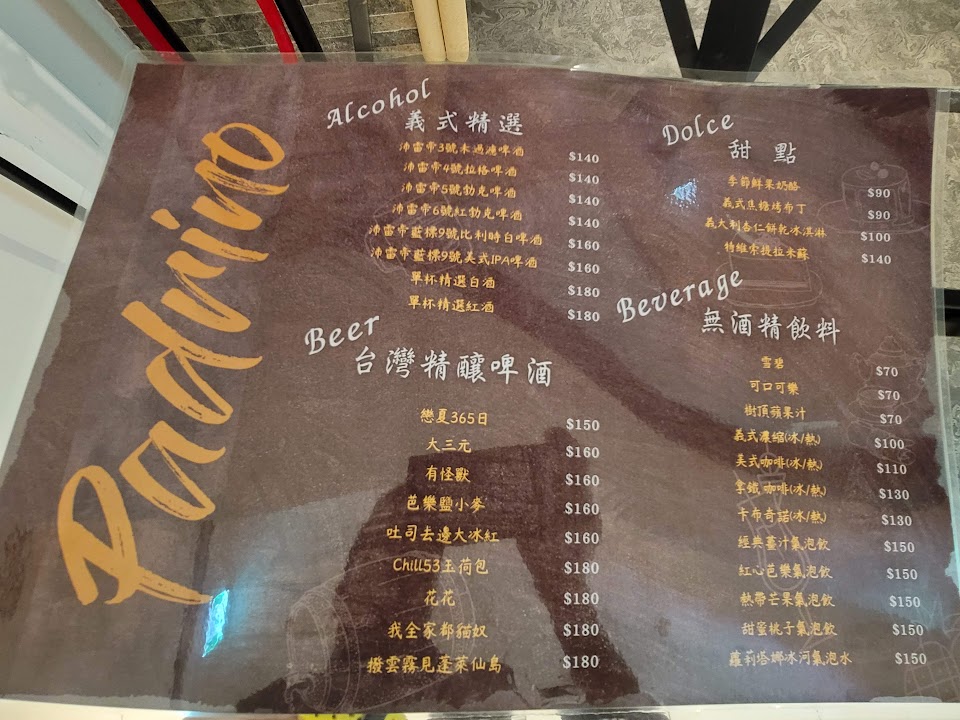 Padrino
Alcohol
義式精選
沛雷帝3號未過濾啤酒 $140
沛雷帝4號拉格啤酒 $140
沛雷帝5號勃克啤酒 $140
沛雷帝6號紅勃克啤酒 $140
沛雷帝藍標9號比利時白啤酒 $160
沛雷帝藍標9號美式IPA啤酒 $160
單杯精選白酒 $180
單杯精選紅酒 $180
Beer
台灣精釀啤酒
戀夏365日 $150
大三元 $160
有怪獸 $160
芭樂鹽小麥 $160
吐司去邊大冰紅 $160
Chill53玉荷包 $180
花花 $180
我全家都貓奴 $180
撥雲霧見蓬萊仙島 $180
Dolce
甜點
季節鮮果奶酪 $90
義式焦糖烤布丁 $90
義大利杏仁餅乾冰淇淋 $100
特維索提拉米蘇 $140
Beverage
無酒精飲料
雪碧 $70
可口可樂 $70
樹頂蘋果汁 $70
義式濃縮(冰/熱) $100
美式咖啡(冰/熱) $110
拿鐵咖啡(冰/熱) $130
卡布奇諾(冰/熱) $130
經典薑汁氣泡飲 $150
紅心芭樂氣泡飲 $150
熱帶芒果氣泡飲 $150
甜蜜桃子氣泡飲 $150
蘿莉塔娜冰河氣泡水 $150